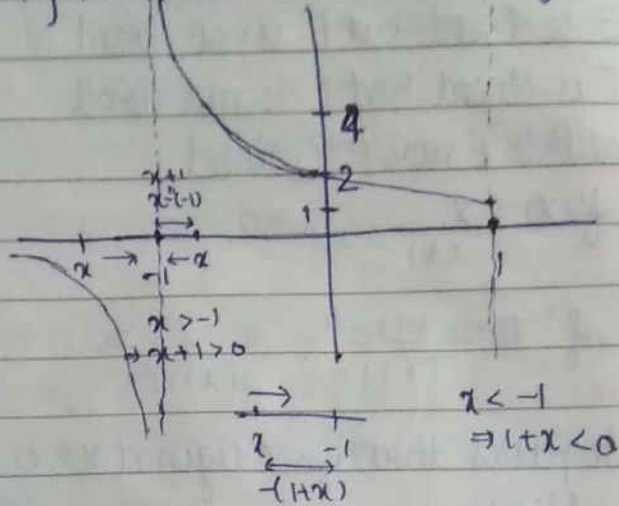 4
x+1
x-(-1)
2
1
x
-1
x
1
x > -1
x+1 > 0
x
-1
-(1+x)
x < -1
⇒ 1+x < 0